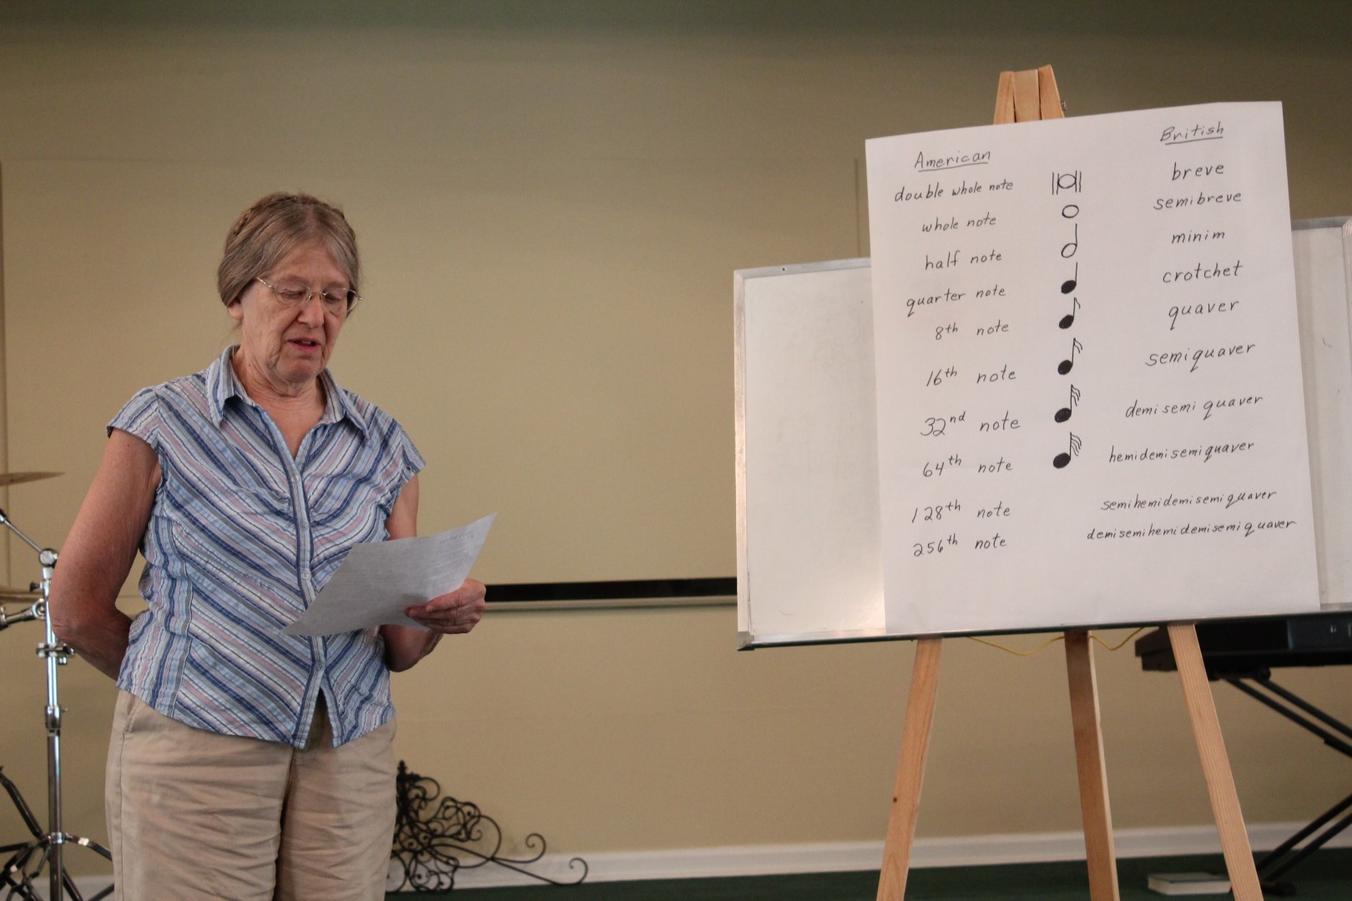 American British
double whole note breve
whole note semibreve
half note minim
quarter note crotchet
8th note quaver
16th note semiquaver
32nd note demisemiquaver
64th note hemidemisemiquaver
128th note semihemidemisemiquaver
256th note demisemihemidemisemiquaver